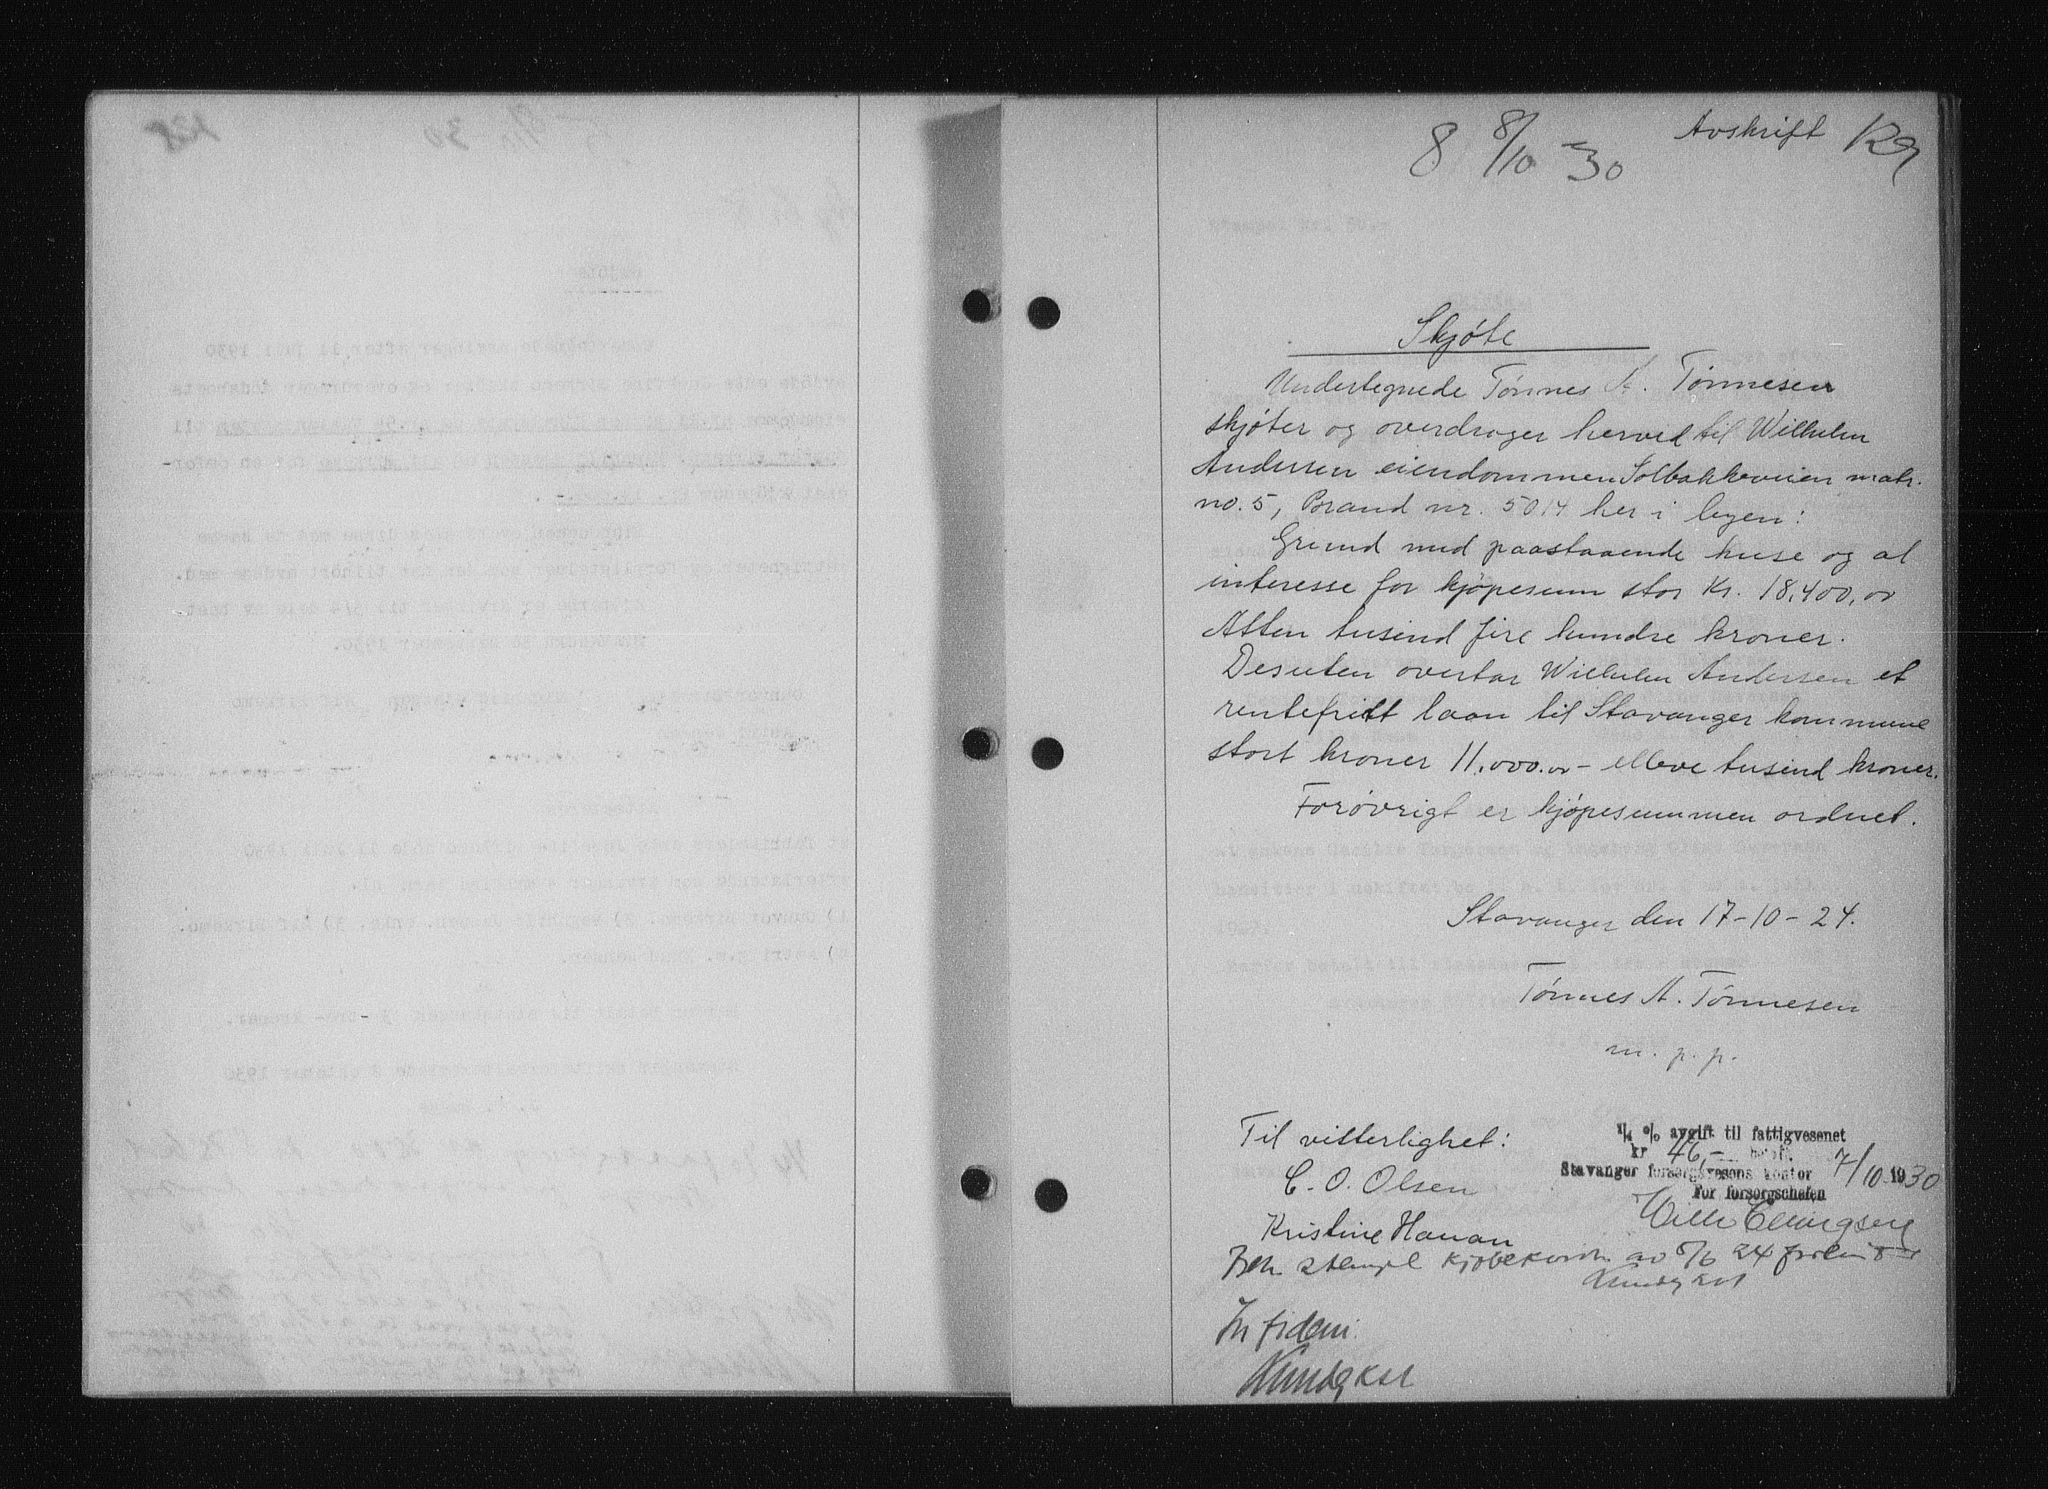 8 8/10 - 30 Avskrift 129
Skjøte
Undertegnede Tønnes A. Tønnesen
skjøter og overdrager herved til Wilhelm
Andersen eiendommen Solbakkeveien matr.
no. 5, Brand nr. 5014 her i byen:
Grund med paastaaende huse og al
interesse for kjøpesum stor Kr. 18,400,00
Atten tusind fire hundre kroner.
Desuten overtar Wilhelm Andersen et
rentefritt laan til Stavanger kommune
stort kroner 11.000.00 - elleve tusind kroner.
Forøvrigt er kjøpesummen ordnet.
Stavanger den 17-10-24.
Tønnes A. Tønnesen
m. p. p.
Til vitterlighet:
C. O. Olsen
Kristine Hauan
1/4 % avgift til fattigvesenet
kr 46,- betalt.
Stavanger forsorgsvesens kontor 7/10 1930
For forsorgschefen
stempl kjøbekontr. av 24
In fidem: